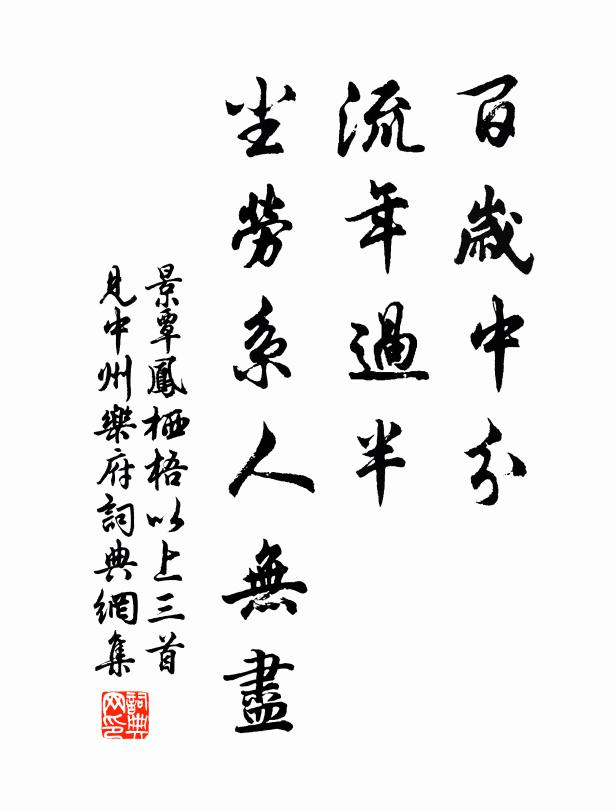 百歲中分
流年過半
尘勞系人無盡
景覃鳳栖梧以上三首
見中州樂府詞典網集
詞典
网印